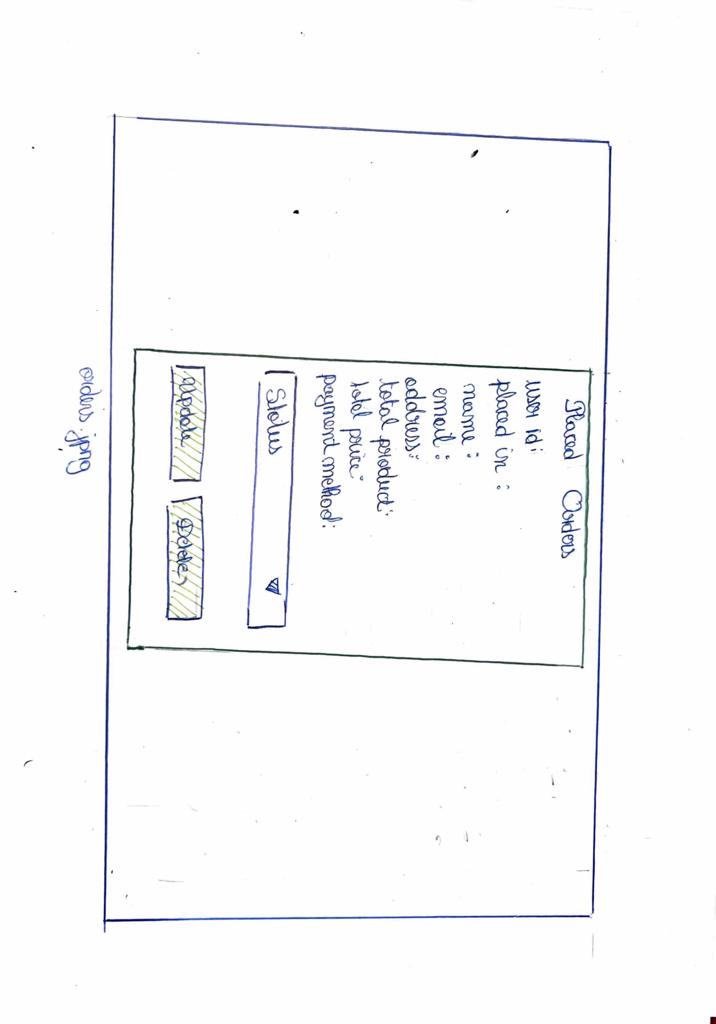 Placed Orders
user id:
placed in :
name :
email :
address:
total product:
total price:
payment method:
Status
Update Delete
orders.jpng